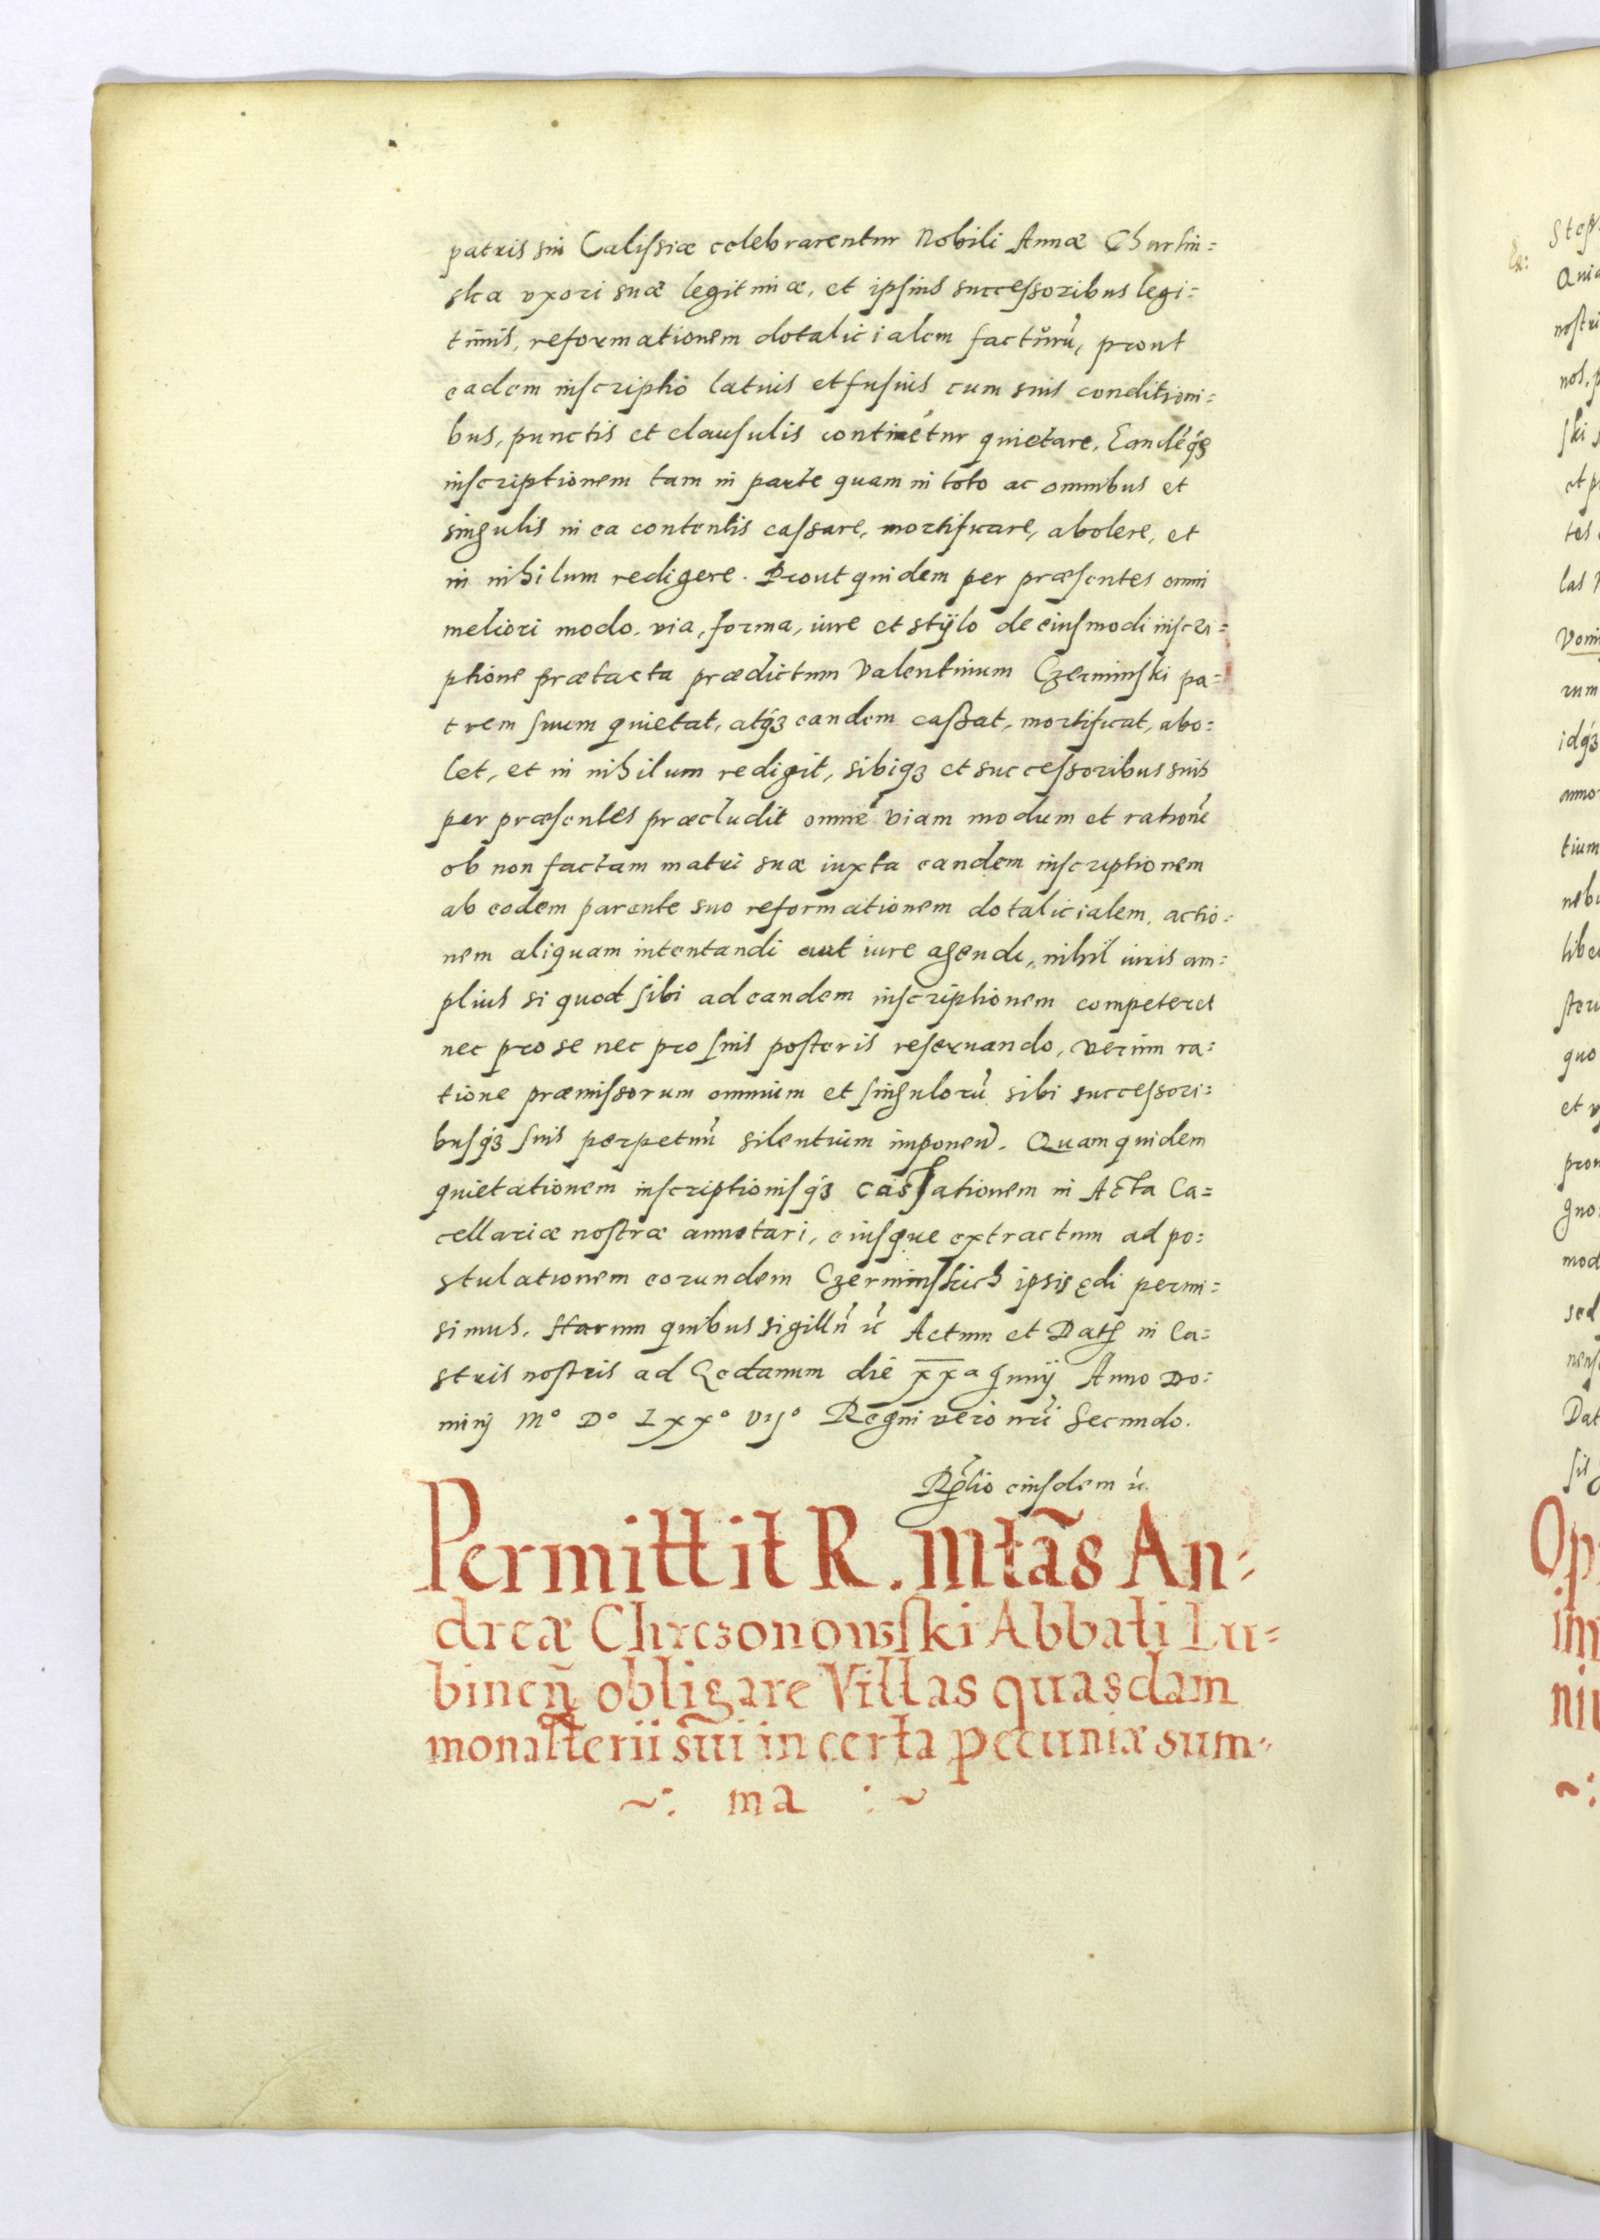 patris sui Calissiæ celebrarentur Nobili Annæ Churlin=
ska vxori suæ legitimæ, et ipsius successoribus legi=
timis, reformationem dotalicialem facturũ, prout
eadem inscriptio latius et fusius cum suis conditioni=
bus, punctis et clausulis continétur quietare, Eandẽq3
inscriptionem tam in parte quam in toto ac omnibus et
singulis in ea contentis cassare, mortificare, abolere, et
in nihilum redigere. Prout quidem per præsentes omni
meliori modo, via, forma, iure et stÿlo de eiusmodi inscri=
ptione prætacta prædictum Valentinum Czerminski pa=
trem suum quietat, atq3 eandem caßat, mortificat, abo=
let, et in nihilum redigit, sibiq3 et successoribus suis
per præsentes præcludit omnẽ viam modum et rationẽ
ob non factam matri suæ iuxta eandem inscriptionem
ab eodem parente suo reformationem dotalicialem, actio=
nem aliquam intentandi aut iure agendi, nihil iuris am=
plius si quod sibi ad eandem inscriptionem competeret
nec pro se nec pro suis posteris reseruando, verum ra=
tione præmissorum omnium et singulorũ sibi successori=
busq3 suis perpetuũ silentium imponeñ. Quam quidem
quietationem inscriptionisq3 cassationem in Acta Ca=
cellariæ nostræ annotari, eiusque extractum ad po=
stulationem eorundem Czerminskich ipsis ędi permi=
simus. Harum quibus sigillũ rc̃ Actum et Datʒ in Ca=
stris nostris ad Gedanum die xxa Junij Anno Do=
minij Mo Do Lxxo VIIo Regni vero nr̃i Secundo.
Rl̃tio eiusdem rc̃.
Permittit R. Mtãs An=
dreæ Chrzsonowski Abbati Lu=
bineñ obligare Villas quasdam
monasterii sũi in certa pecuniæ sum=
~: ma :~